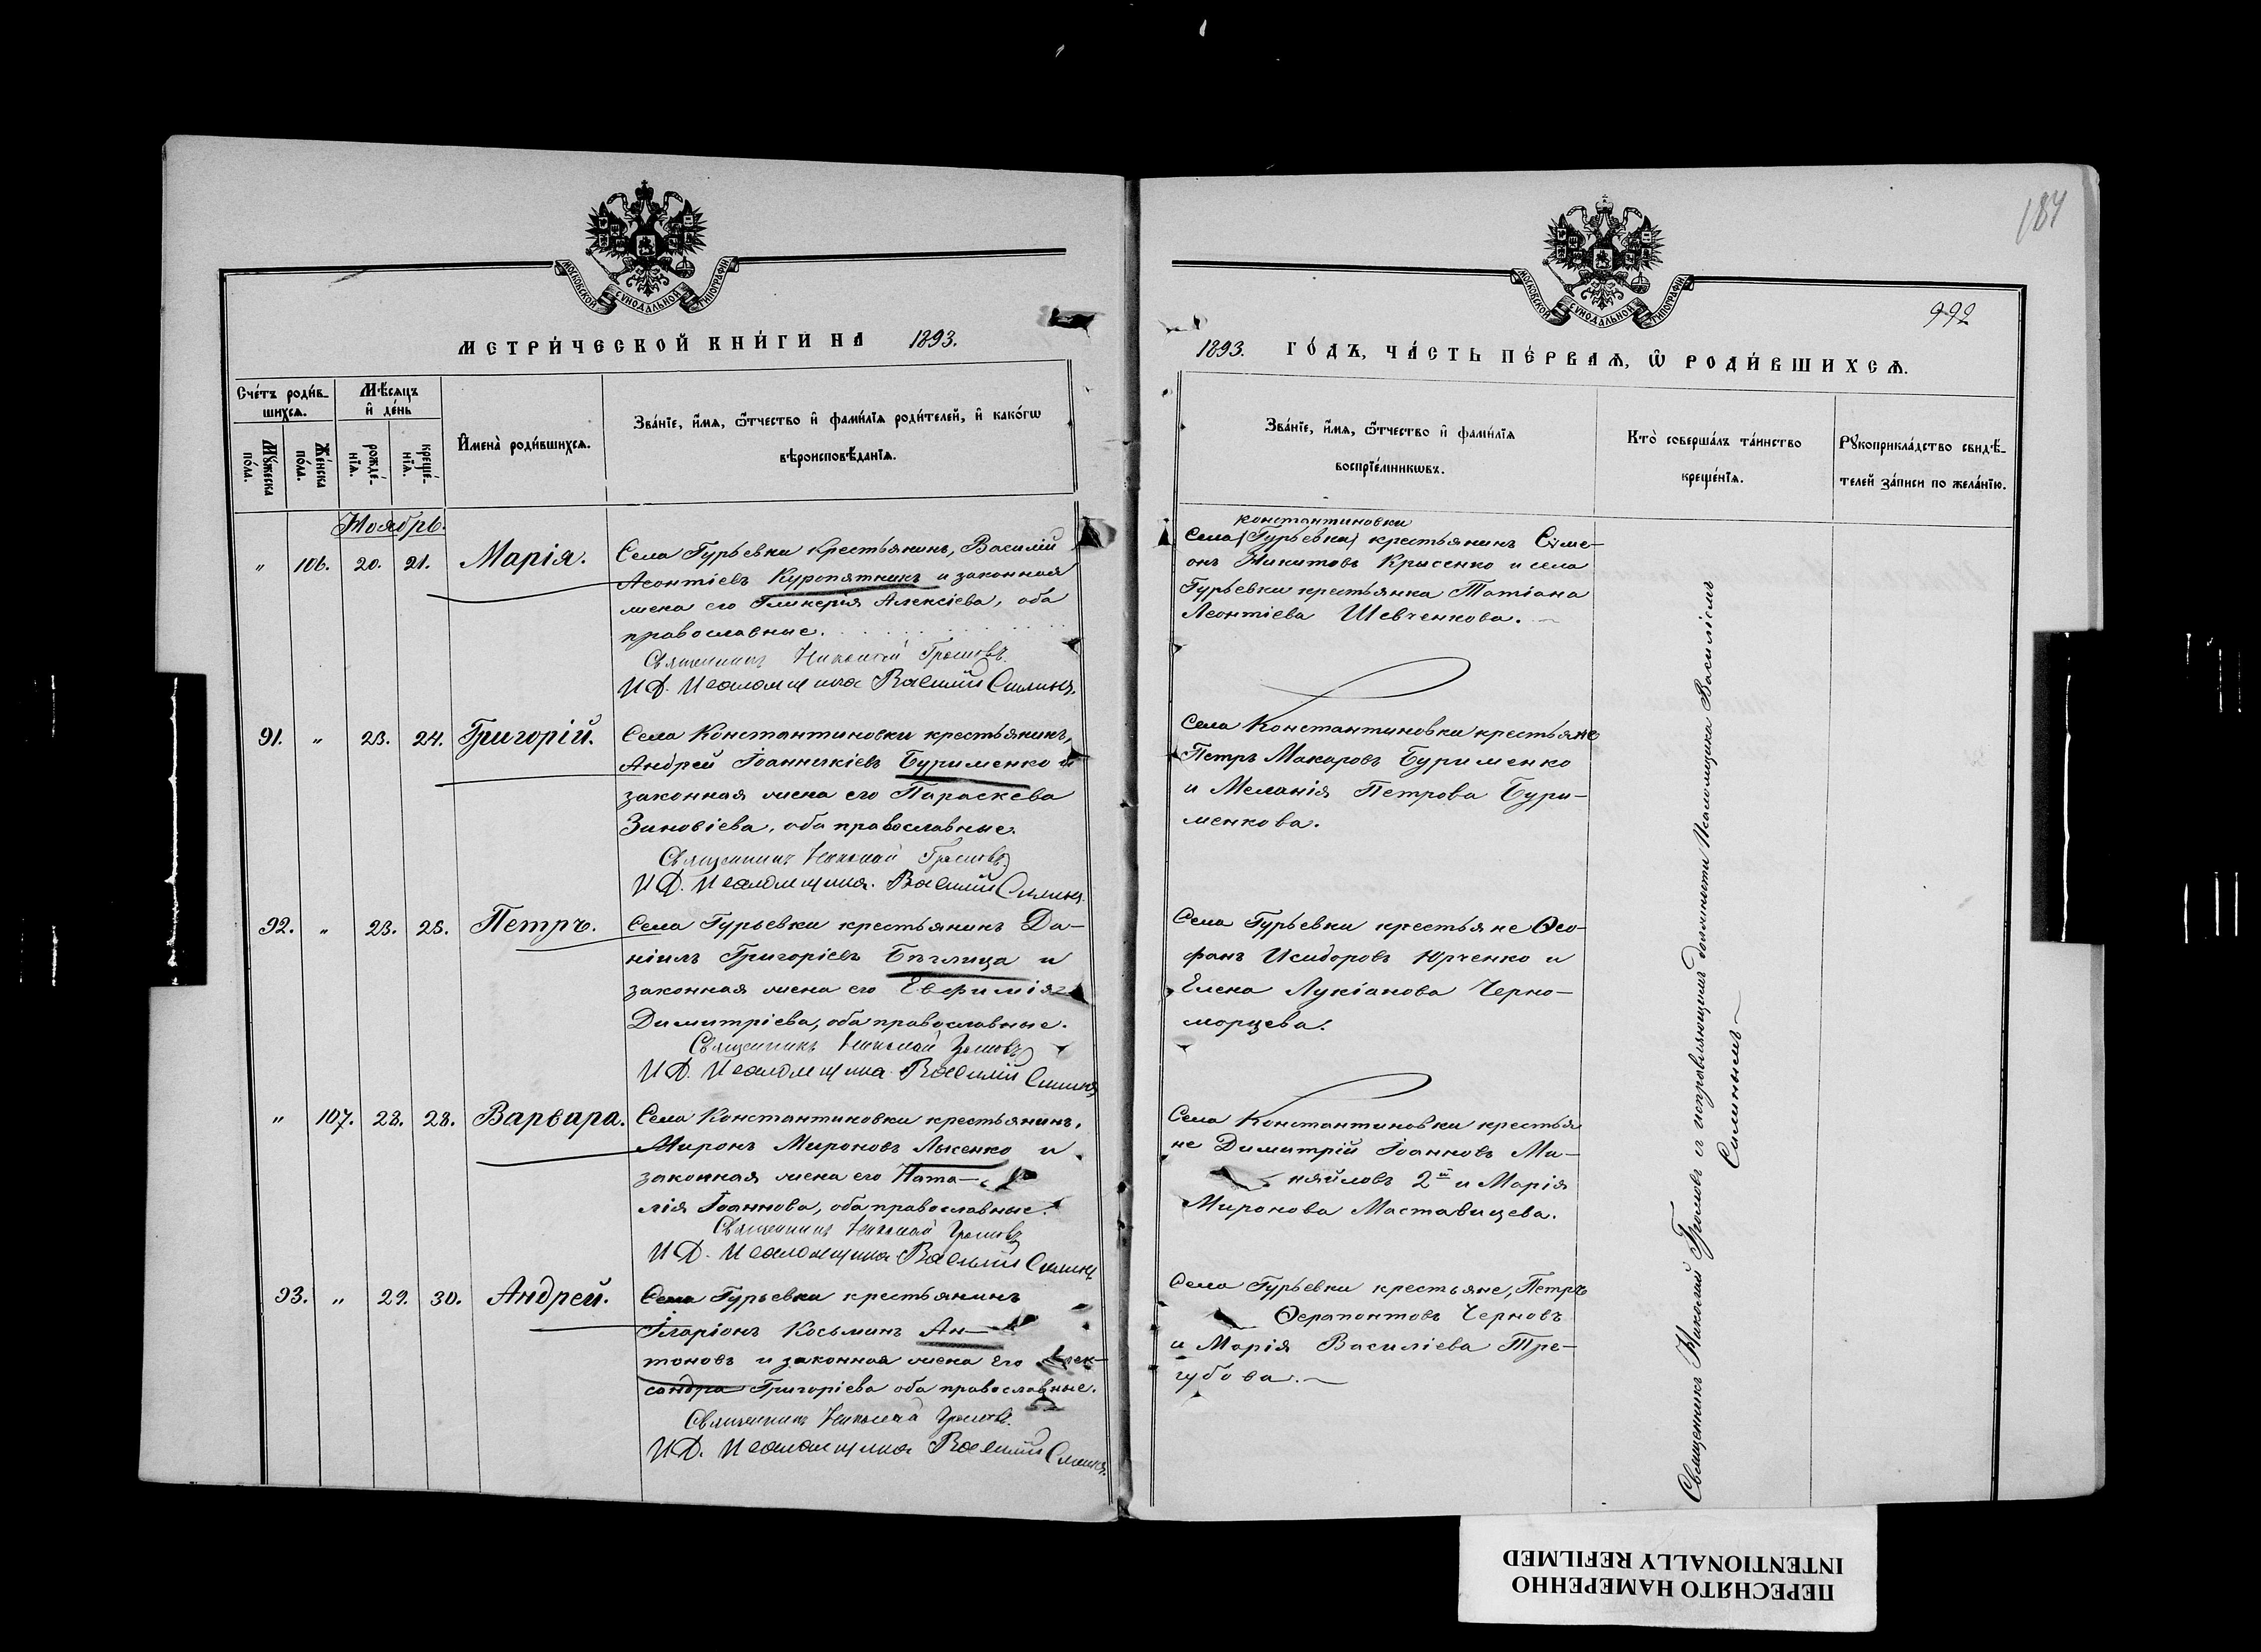 МОСКОВСКОЙ СУНОДАЛЬНОЙ ТИПОГРАФІИ
МЕТРИ́ЧЕСКОЙ КНИ́ГИ НА 1893.
Сче́тъ роди́в-
шихсѧ.
Мѣ́сѧцъ
и҆ де́нь
И҆мена̀ роди́вшихсѧ.
Зва́нїе, и҆́мѧ, ѻ҆́тчество и҆ фами́лїѧ роди́телей, и҆ како́гѡ
вѣроисповѣ́данїѧ.
Мꙋ́жеска
по́ла.
Же́нска
по́ла.
рожде́-
нїѧ.
креще́-
нїѧ.
Ноябрь.
" 106. 20. 21. Марія.
Села Гурьевки крестьянинъ, Василій
Леонтіевъ Куропятникъ и законная
жена его Гликерія Алексіева, оба
православные.
Священникъ Николай Громовъ.
И. Д. Псаломщика Василій Силинъ.
91. " 23. 24. Григорій.
Села Константиновки крестьянинъ,
Андрей Іоанникіевъ Бурименко и
законная жена его Параскева
Зиновіева, оба православные.
Священникъ Николай Громовъ
И. Д. Псаломщика. Василій Силинъ.
92. " 23. 25. Петръ.
Села Гурьевки крестьянинъ Да-
ніилъ Григоріевъ Бѣглица и
законная жена его Евфимія
Димитріева, оба православные.
Священникъ Николай Громовъ
И. Д. Псаломщика Василій Силинъ
" 107. 28. 28. Варвара.
Села Константиновки крестьянинъ,
Миронъ Мироновъ Лысенко и
законная жена его Ната-
лія Іоаннова, оба православные.
Священникъ Николай Громовъ
И. Д. Псаломщика Василій Силинъ
93. " 29. 30. Андрей.
Села Гурьевки крестьянинъ
Іларіонъ Косьминъ Ан-
тоновъ и законная жена его Алек-
сандра Григоріева оба православные.
Священникъ Николай Громовъ.
И. Д. Псаломщика Василій Силинъ.
184
МОСКОВСКОЙ СУНОДАЛЬНОЙ ТИПОГРАФІИ
992
1893. ГО́ДЪ, ЧА́СТЬ ПЕ́РВАѦ, Ѽ РОДИ́ВШИХСѦ.
Зва́нїе, и҆́мѧ, ѻ҆́тчество и҆ фами́лїѧ
воспрїе́мникѡвъ.
Кто̀ соверша́лъ та́инство
креще́нїѧ.
Рꙋкоприкла́дство свидѣ́-
телей за́писи по жела́нїю.
константиновки
Села (Гурьевки) крестьянинъ Симе-
онъ Никитовъ Крисенко и села
Гурьевки крестьянка Татіана
Леонтіева Шевченкова.
Села Константиновки крестьяне
Петръ Макаровъ Бурименко
и Меланія Петрова Бури-
менкова.
Села Гурьевки крестьяне Ѳео-
фанъ Исидоровъ Юрченко и
Елена Лукіанова Черно-
морцева.
Села Константиновки крестья
не Димитрій Іоанновъ Ми-
няйловъ 2й и Марія
Миронова Маставицева.
Села Гурьевки крестьяне, Петръ
Ѳерапонтовъ Черновъ
и Марія Василіева Тре-
губова.
Священникъ Николай Громовъ съ исправляющимъ должность Псаломщика Василіемъ
Силинымъ
ПЕРЕСНЯТО НАМЕРЕННО
INTENTIONALLY REFILMED